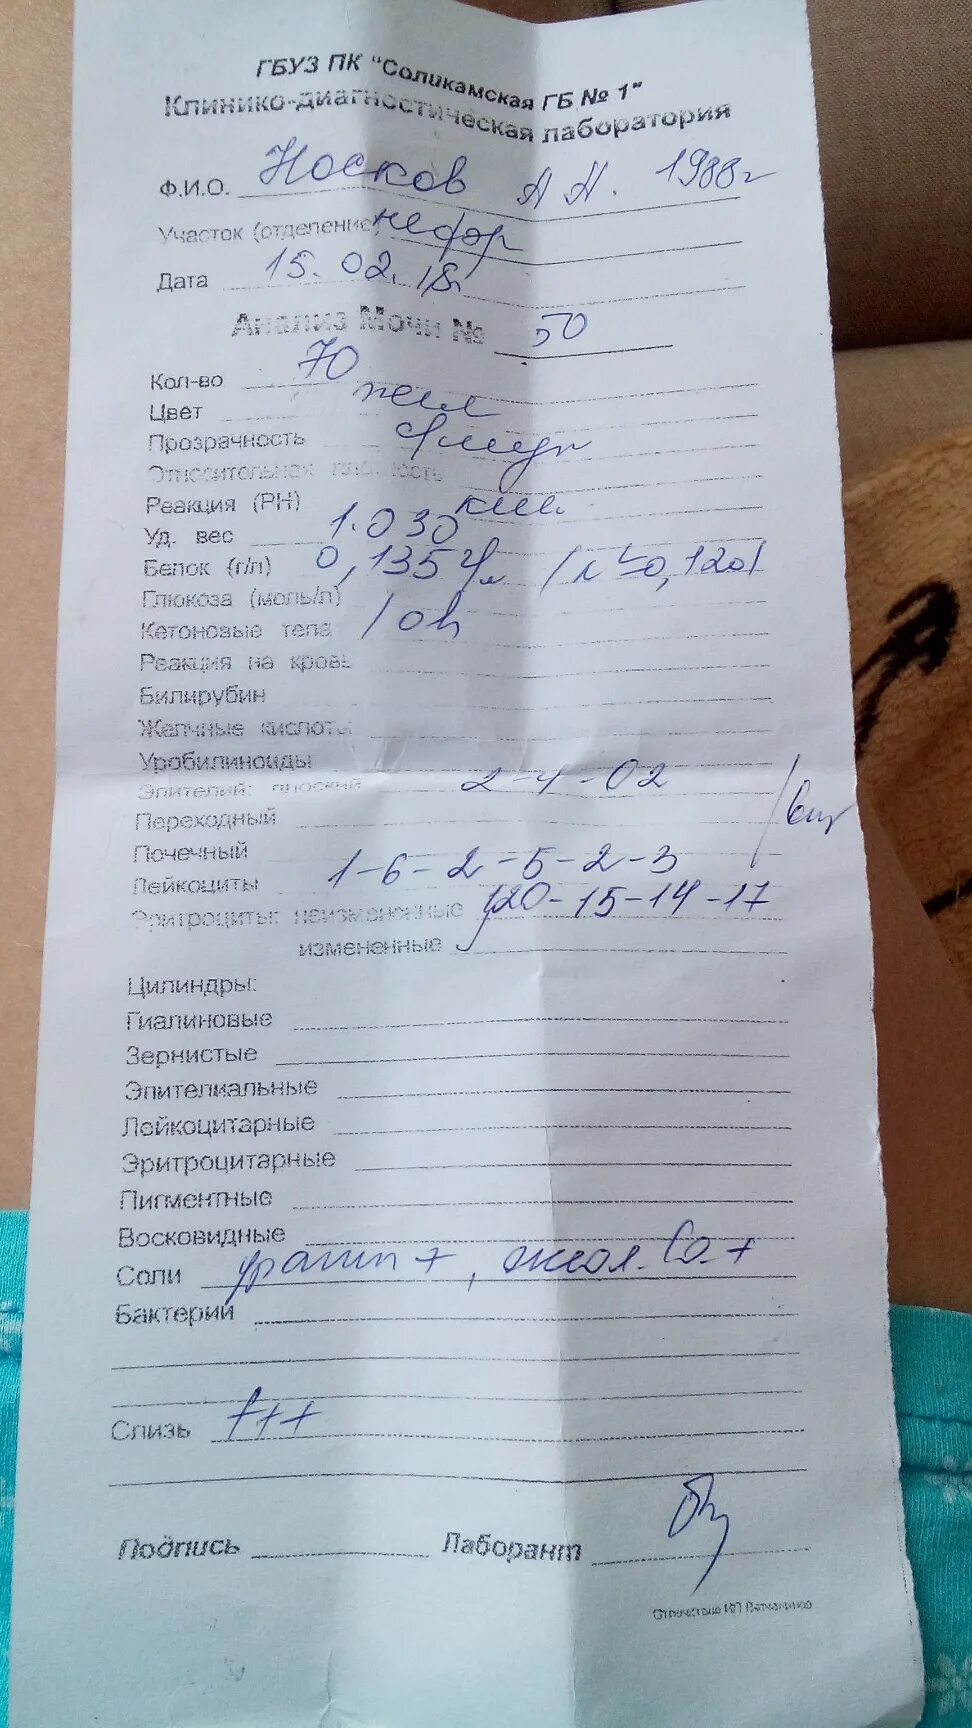 ГБУЗ ПК "Соликамская ГБ № 1"
Клинико-диагностическая лаборатория
Ф.И.О. Носков А Н. 1988г
Участок (отделение) нефр
Дата 15.02.18г
Анализ Мочи № 50
Кол-во 70
Цвет жел
Прозрачность
Относительная плотность
Реакция (РН) кис.
Уд. вес 1.030
Белок (г/л) 0,135 г/л 0,120)
Глюкоза (моль/л)
Кетоновые тела
Реакция на кровь
Билирубин
Желчные кислоты
Уробилиноиды
Эпителий: плоский
Переходный
Почечный
Лейкоциты 1-6-2-5-2-3
Эритроциты: неизмененные 20-15-14-17
измененные
Цилиндры:
Гиалиновые
Зернистые
Эпителиальные
Лейкоцитарные
Эритроцитарные
Пигментные
Восковидные
Соли +, Ca +
Бактерии
Слизь +++
Подпись Лаборант
Отпечатано ИП